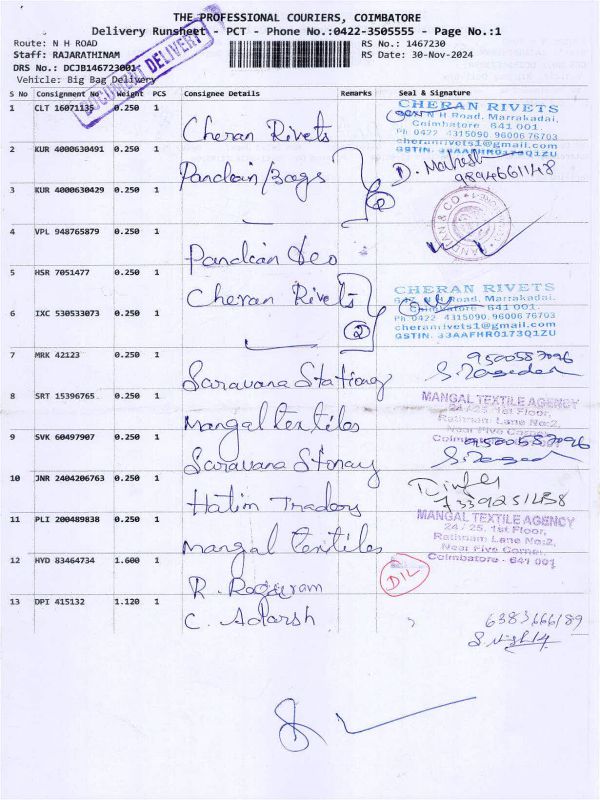 THE PROFESSIONAL COURIERS, COIMBATORE
Delivery Runsheet - PCT - Phone No.:0422-3505555 - Page No.:1
Route: N H ROAD
RS No.: 1467230
Staff: RAJARATHINAM
RS Date: 30-Nov-2024
DRS No.: DCJB146723001
Vehicle: Big Bag Delivery
DOCUMENT DELIVERY
S No Consignment No Weight PCS Consignee Details Remarks Seal & Signature
1 CLT 16071135 0.250 1 Cheran Rivets
CHERAN RIVETS
N H Road, Marrakadai,
Coimbatore 641 001.
Ph 0422 4315090, 96006 76703
cheranrivets1@gmail.com
GSTIN. 33AAFHR0173Q1ZU
2 KUR 4000630491 0.250 1 Pandian/Bags
D. Mahesh
9894661148
3 KUR 4000630429 0.250 1
2
4 VPL 948765879 0.250 1 Pandian &co
PANDIAN & CO
5 HSR 7051477 0.250 1 Cheran Rivets
CHERAN RIVETS
N H Road, Marrakadai.
Coimbatore 641 001.
Ph:0422 4315090, 96006 76703
cheranrivets1@gmail.com
GSTIN. 33AAFHR0173Q1ZU
6 IXC 530533073 0.250 1
2
7 MRK 42123 0.250 1 Saravana Stationay
9500587096
8 SRT 15396765 0.250 1 Mangal textiles
MANGAL TEXTILE AGENCY
24 / 25, 1st Floor,
Rathnam Lane No:2,
Near Five Corner,
9 SVK 60497907 0.250 1 Saravana Stonay
9500587096
10 JNR 2404206763 0.250 1 Hatim Traders
11 PLI 200489838 0.250 1 Mangal textiles
MANGAL TEXTILE AGENCY
24 / 25, 1st Floor,
Rathnam Lane No:2,
Near Five Corner,
Coimbatore - 641 001
12 HYD 83464734 1.600 1 R. Roguram
DIL
13 DPI 415132 1.120 1 C. Adarsh
6383666189